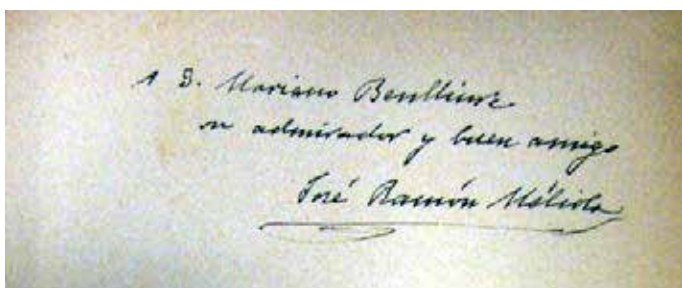 A D. Mariano Benlliure
su admirador y buen amigo
José Ramón Mélida